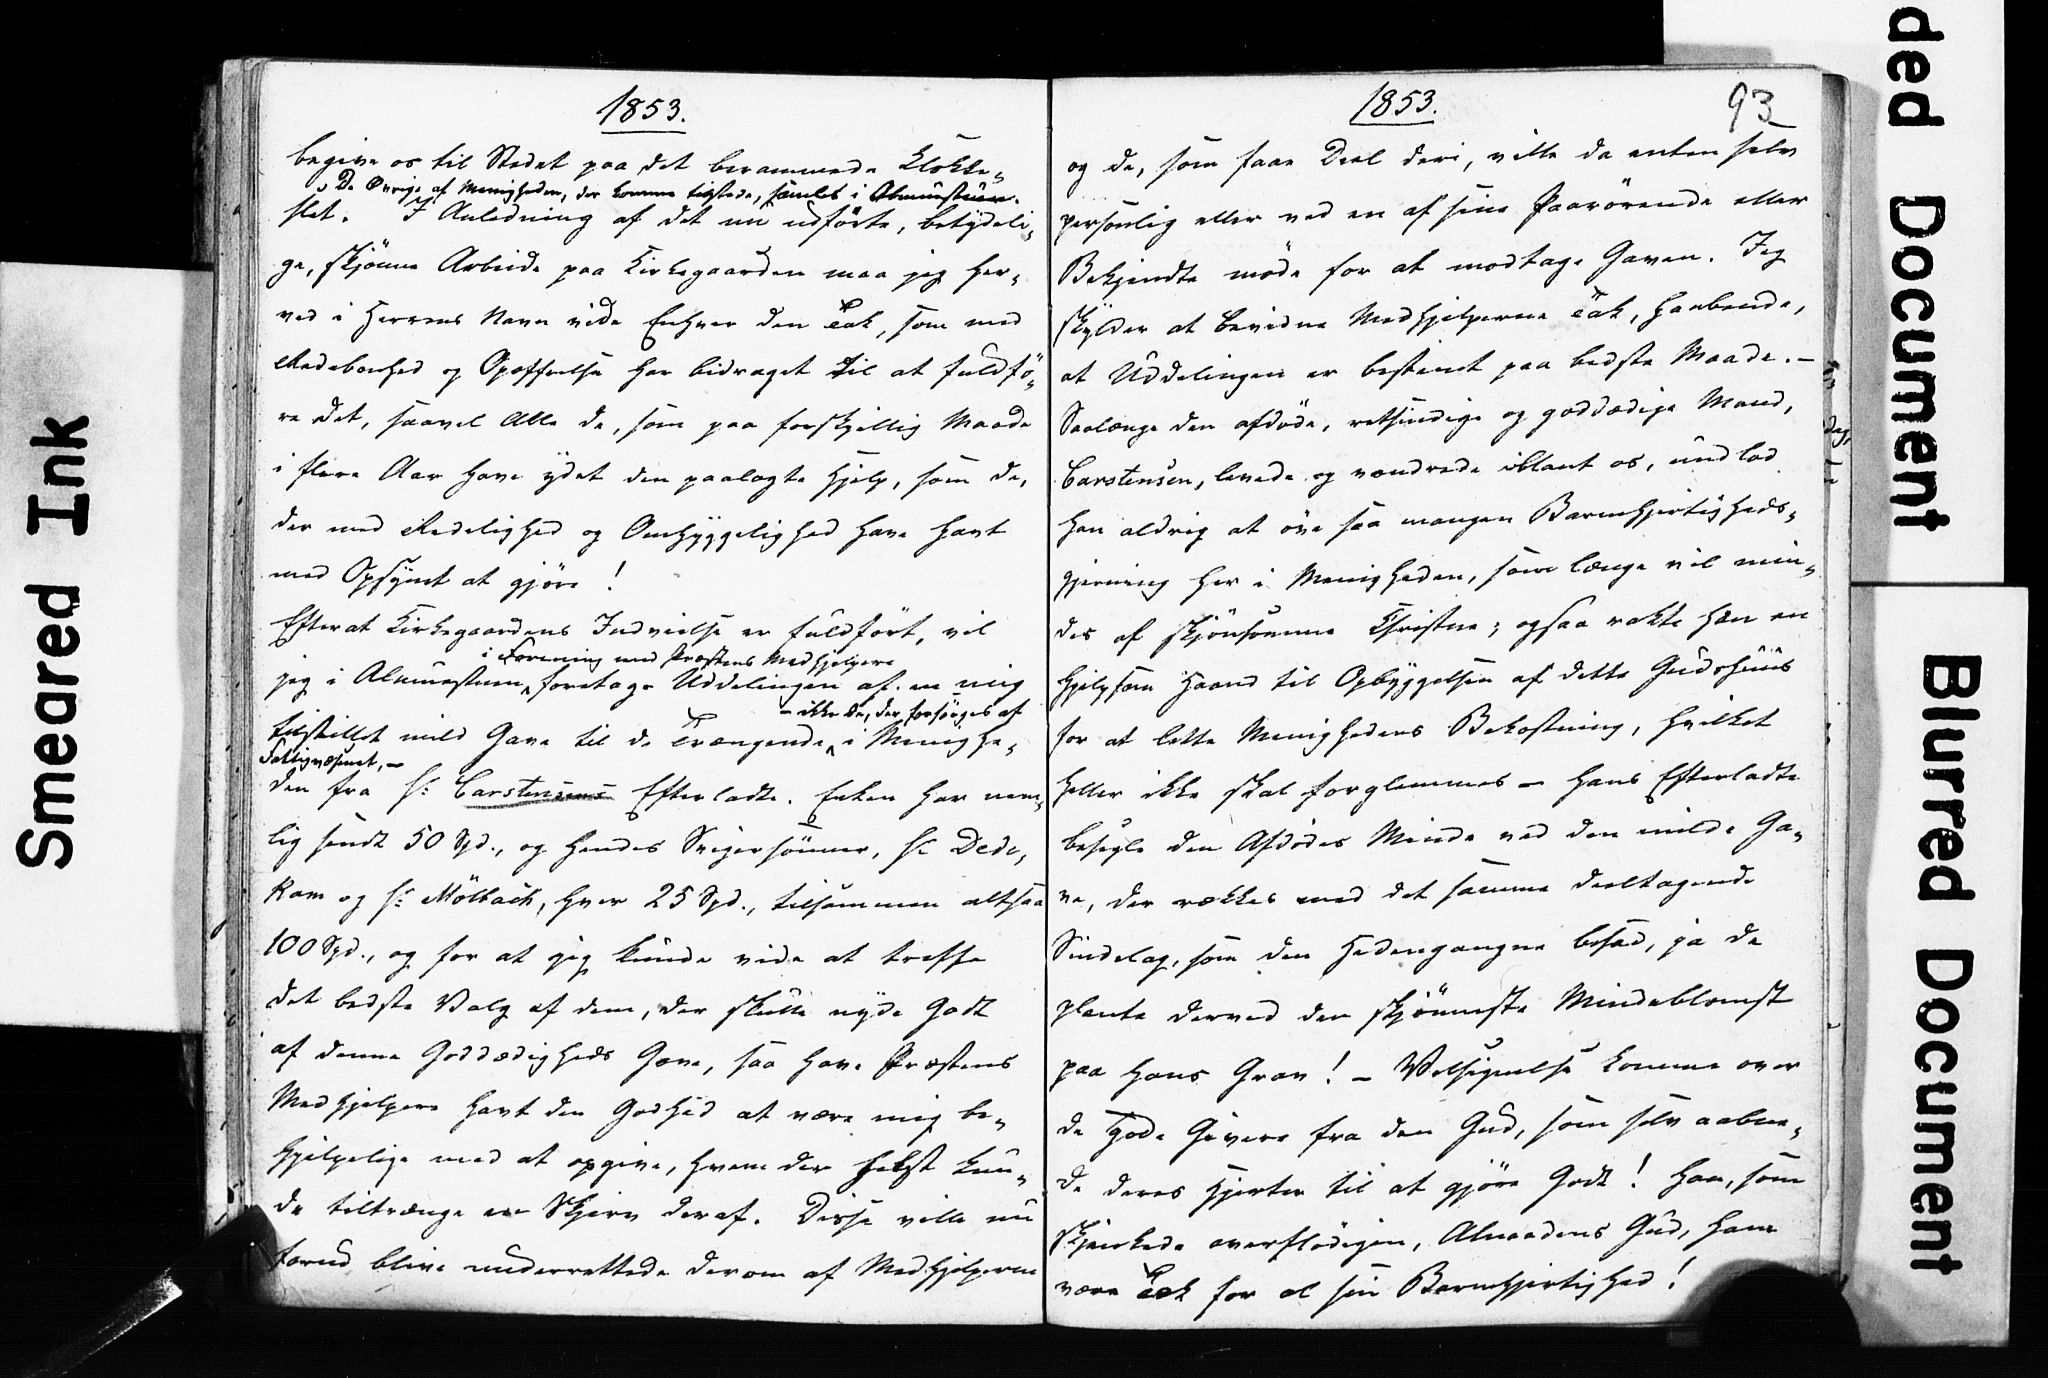 1853.
begive os til Stedet paa det berammede Klokke-
De Øvrige af Menigheden, der komme tilstede, samles i Almuestuen.
slet. I Anledning af det nu udförte, betydeli-
ge, skjönne Arbeide paa Kirkegaarden maa jeg her-
ved i Herrens Navn vide Enhver den Tak, som med
Redebonhed og Opoffrelse har bidraget til at fuldfö-
re det, saavel Alle de, som paa forskjellig Maade
i flere Aar have ydet den paalagte Hjelp, som de,
der med Redelighed og Omhyggelighed have havt
med Opsynet at gjöre!
Efterat Kirkegaardens Indvielse er fuldfört, vil
i Forening med Præstens Medhjelpere
jeg i Almuestuen foretage Uddelingen af en mig
- ikke de, der forsörges af
tilstillet mild Gave til de Trængende i Menighe-
Fattigvæsenet, -
den fra Hr Carstensens Efterladte. Enken har nem-
lig sendt 50 Spd., og hendes Svigersönner, Hr Dede-
kam og Hr Mölbach, hver 25 Spd., tilsammen altsaa
100 Spd., og for at jeg kunde vide at treffe
det bedste Valg af dem, der skulle nyde Godt
af denne Goddædigheds Gave, saa have Præstens
Medhjelpere havt den Godhed at være mig be-
hjelpelige med at opgive, hvem der helst kun-
de tiltrænge en Skjerv deraf. Disse ville nu
forud blive underrettede derom af Medhjelperne
1853.
93
og de, som faae Deel deri, ville da enten selv
personlig eller ved en af sine Paarörende eller
Bekjendte möde for at modtage Gaven. Jeg
skylder at bevidne Medhjelperne Tak, haabende,
at Uddelingen er bestemt paa bedste Maade. -
Saalænge den afdöde, retsindige og goddædige Mand,
Carstensen, levede og vandrede iblant os, undlod
han aldrig at öve saa mangen Barmhjertigheds-
gjerning her i Menigheden, som længe vil min-
des af skjönsomme Christne; ogsaa rakte han en
hjelpsom Haand til Opbyggelsen af dette Gudshuus
for at lette Menighedens Bekostning, hvilket
heller ikke skal forglemmes - Hans Efterladte
besegle den Afdödes Minde ved den milde Ga-
ve, der rækkes med det samme deeltagende
Sindelag, som den Hedengangne besad, ja de
plante derved den skjönneste Mindeblomst
paa Hans Grav! - Velsignelse komme over
de gode Givere fra den Gud, som selv aabne-
de deres Hjerter til at gjöre Godt! Han, som
skjenkede overflödigen, Almagtens Gud, ham
være Tak for al sin Barmhjertighed!
Smeared Ink
ded Document
Blurred Document